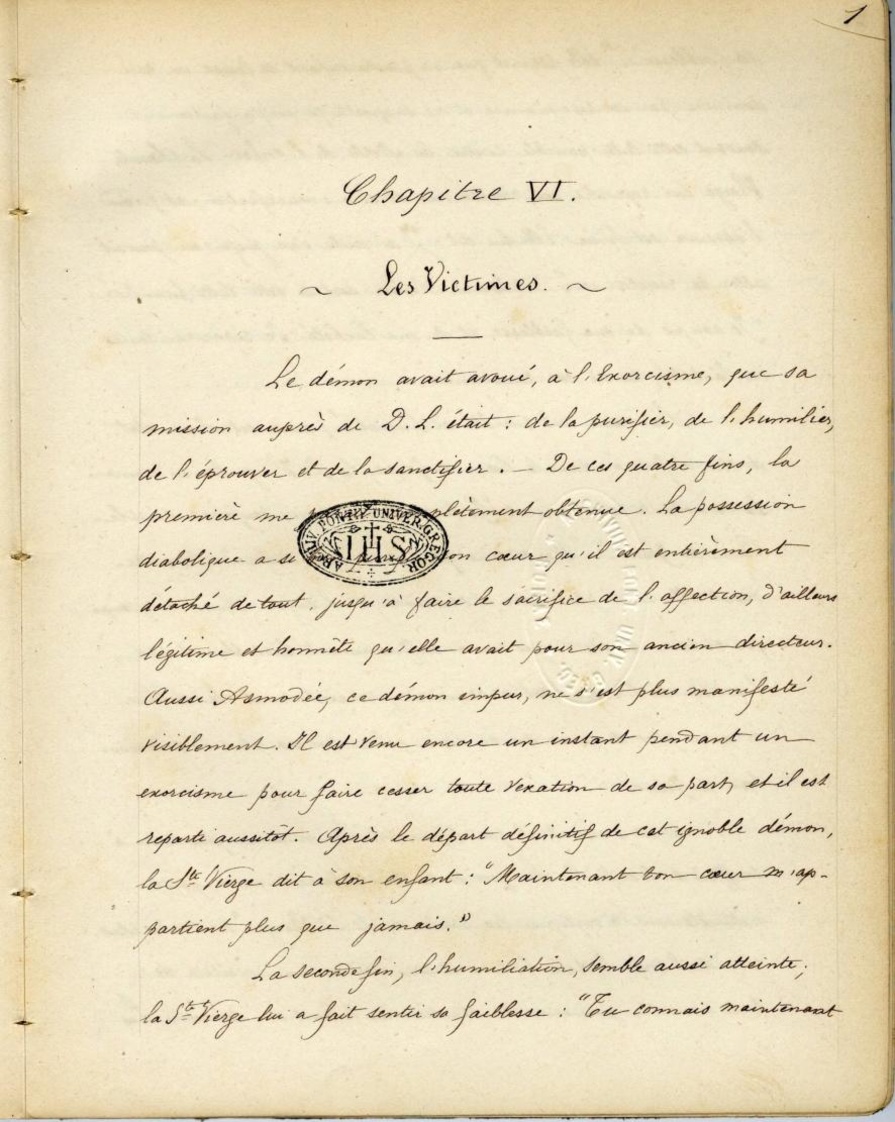 1
Chapitre VI.
~ Les Victimes. ~
Le démon avait avoué, à l'Exorcisme, que sa
mission auprès de D. L. était : de la purifier, de l'humilier,
de l'éprouver et de la sanctifier. — De ces quatre fins, la
première me plètement obtenue. La possession
diabolique a si on cœur qu'il est entièrement
détaché de tout, jusqu'à faire le sacrifice de l'affection, d'ailleurs
légitime et honnête qu'elle avait pour son ancien directeur.
Aussi Asmodée, ce démon impur, ne s'est plus manifesté
visiblement. Il est venu encore un instant pendant un
exorcisme pour faire cesser toute vexation de sa part, et il est
reparti aussitôt. Après le départ définitif de cet ignoble démon,
la Ste Vierge dit à son enfant : "Maintenant ton cœur m'ap-
partient plus que jamais."
La seconde fin, l'humiliation, semble aussi atteinte;
la Ste Vierge lui a fait sentir sa faiblesse : "Tu connais maintenant
ARCHIV. PONTIF. UNIVER. GREGOR.
IHS